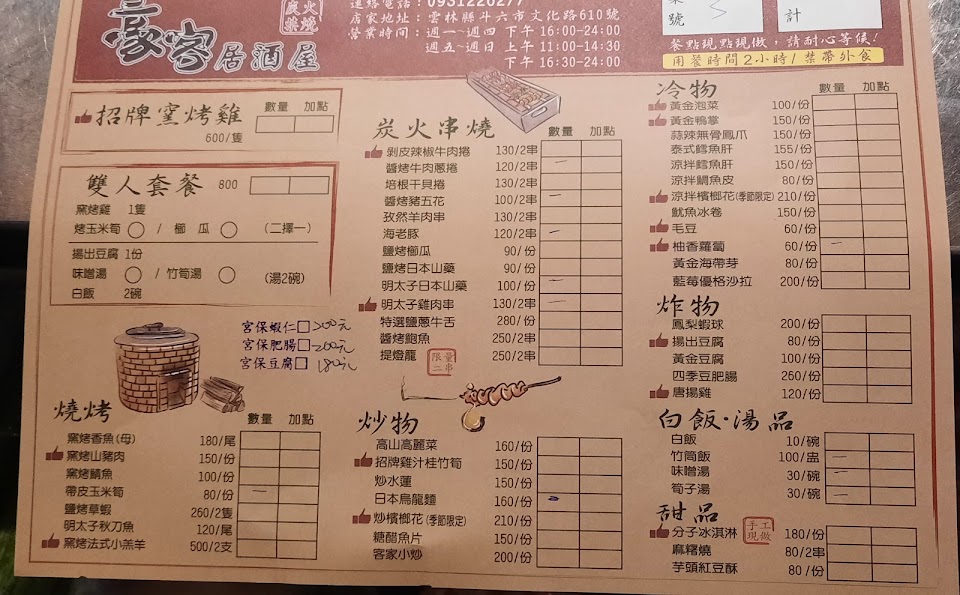 豪客居酒屋
炭火燒
連絡電話：0931226277
店家地址：雲林縣斗六市文化路610號
營業時間：週一~週四 下午 16:00-24:00
週五~週日 上午 11:00-14:30
下午 16:30-24:00
號
計
餐點現點現做，請耐心等候！
用餐時間2小時/禁帶外食
招牌窯烤雞 數量 加點
600/隻
雙人套餐 800
窯烤雞 1隻
烤玉米筍 / 櫛瓜 (二擇一)
揚出豆腐 1份
味噌湯 / 竹筍湯 (湯2碗)
白飯 2碗
宮保蝦仁□200元
宮保肥腸□200元
宮保豆腐□180元
燒烤 數量 加點
窯烤香魚(母) 180/尾
窯烤山豬肉 150/份
窯烤鯖魚 100/份
帶皮玉米筍 80/份
鹽烤草蝦 260/2隻
明太子秋刀魚 120/尾
窯烤法式小羔羊 500/2支
炭火串燒 數量 加點
剝皮辣椒牛肉捲 130/2串
醬烤牛肉蔥捲 120/2串
培根干貝捲 130/2串
醬烤豬五花 100/2串
孜然羊肉串 130/2串
海老豚 120/2串
鹽烤櫛瓜 90/份
鹽烤日本山藥 90/份
明太子日本山藥 100/份
明太子雞肉串 130/2串
特選鹽蔥牛舌 280/份
醬烤鮑魚 250/2串
提燈龍 限量二串 250/2串
炒物
高山高麗菜 160/份
招牌雞汁桂竹筍 150/份
炒水蓮 150/份
日本烏龍麵 160/份
炒檳榔花(季節限定) 210/份
糖醋魚片 150/份
客家小炒 200/份
冷物 數量 加點
黃金泡菜 100/份
黃金鴨掌 150/份
蒜辣無骨鳳爪 150/份
泰式鱈魚肝 155/份
涼拌鱈魚肝 150/份
涼拌鯛魚皮 80/份
涼拌檳榔花(季節限定) 210/份
魷魚冰卷 150/份
毛豆 60/份
柚香蘿蔔 60/份
黃金海帶芽 80/份
藍莓優格沙拉 200/份
炸物
鳳梨蝦球 200/份
揚出豆腐 80/份
黃金豆腐 100/份
四季豆肥腸 260/份
唐揚雞 120/份
白飯·湯品
白飯 10/碗
竹筒飯 100/盅
味噌湯 30/碗
筍子湯 30/碗
甜品 手工現做
分子冰淇淋 180/份
麻糬燒 80/2串
芋頭紅豆酥 80/份